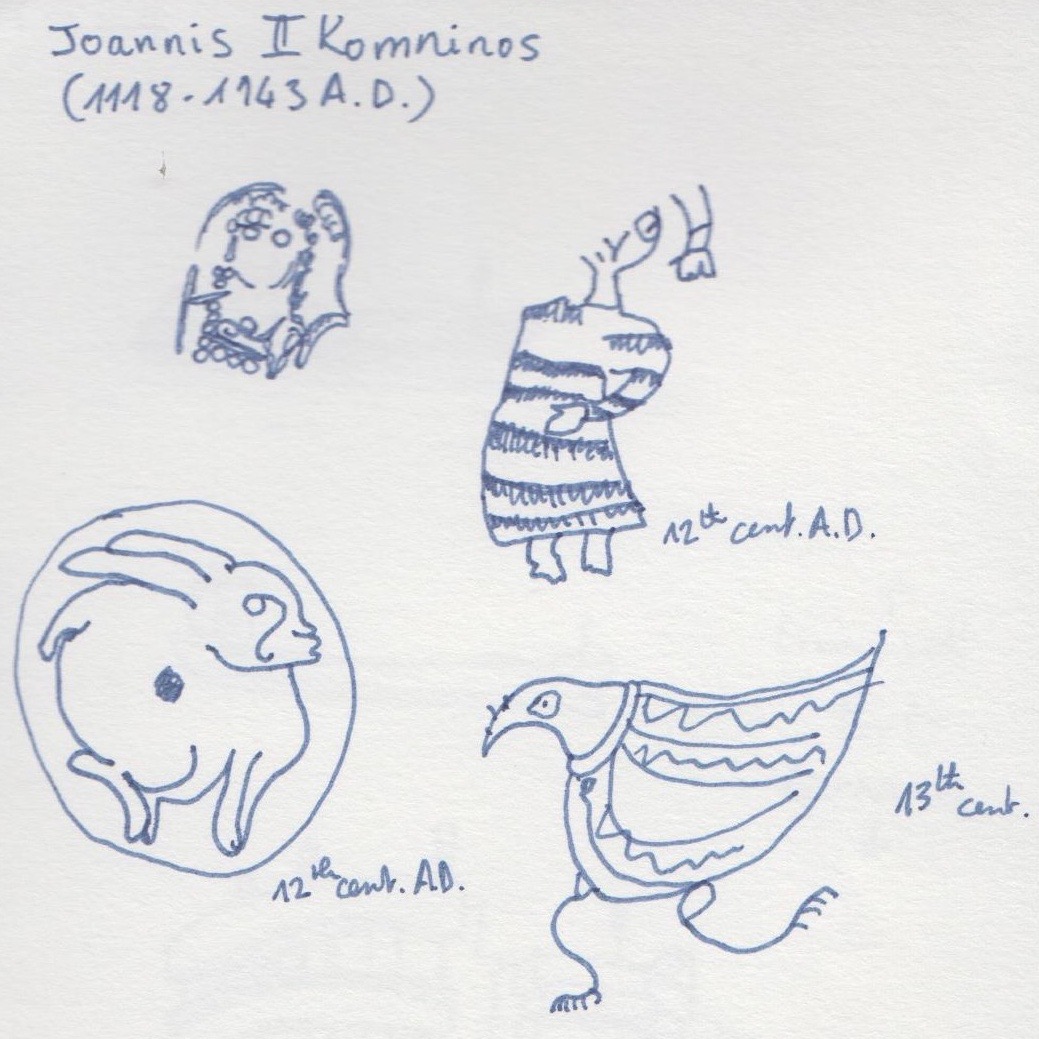 Joannis II Komninos
(1118-1143 A.D.)
12th cent. A.D.
12th cent. A.D.
13th cent.